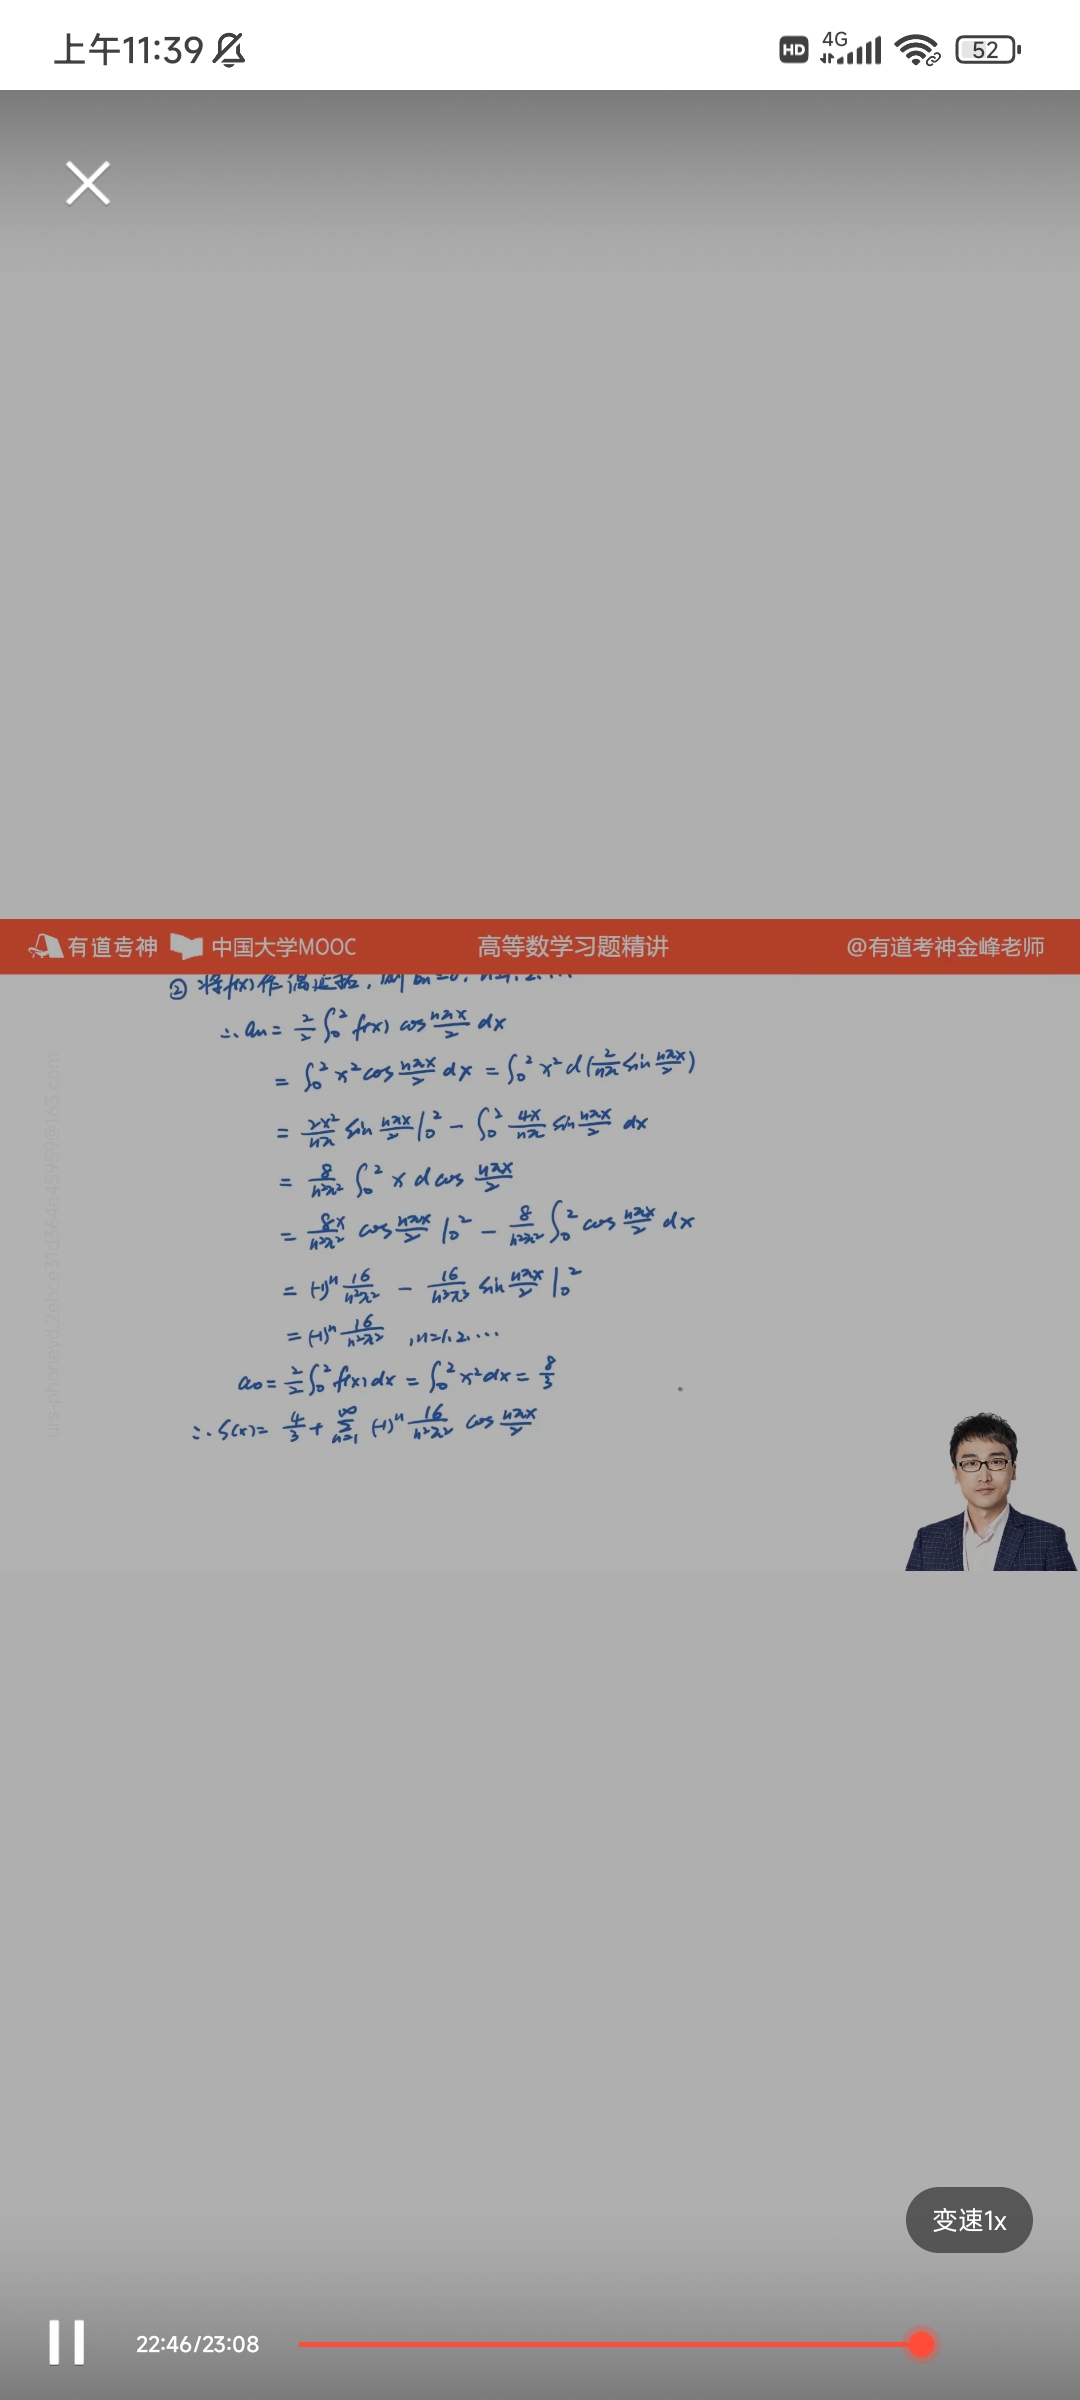 上午11:39 HD 4G 52
有道考神 中国大学MOOC 高等数学习题精讲 @有道考神金峰老师
② 将f(x)作偶延拓, 则 bn=0, n=1, 2, …
∴ an = 2/2 ∫₀² f(x) cos nπx/2 dx
= ∫₀² x² cos nπx/2 dx = ∫₀² x² d(2/nπ sin nπx/2)
= 2x²/nπ sin nπx/2 |₀² - ∫₀² 4x/nπ sin nπx/2 dx
= 8/n²π² ∫₀² x d cos nπx/2
= 8x/n²π² cos nπx/2 |₀² - 8/n²π² ∫₀² cos nπx/2 dx
= (-1)ⁿ 16/n²π² - 16/n³π³ sin nπx/2 |₀²
= (-1)ⁿ 16/n²π² , n=1, 2, …
a₀ = 2/2 ∫₀² f(x) dx = ∫₀² x² dx = 8/3
∴ S(x) = 4/3 + ∑ₙ₌₁^∞ (-1)ⁿ 16/n²π² cos nπx/2
变速1x
22:46/23:08